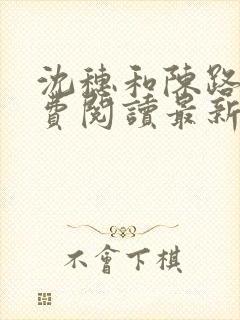 沈穗和陳路
費閱讀最新
不會下棋